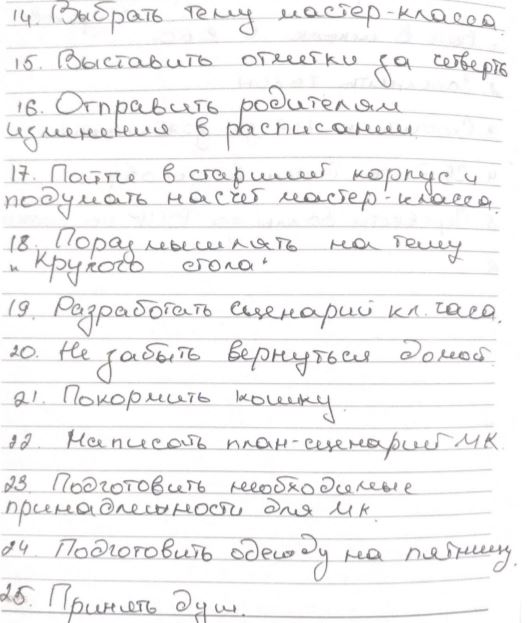 14. Выбрать тему мастер-класса.
15. Выставить отметки за четверть
16. Отправить родителям
изменения в расписании.
17. Пойти в старший корпус и
подумать насчёт мастер-класса.
18. Поразмышлять на тему
"Круглого стола"
19. Разработать сценарий кл. часа.
20. Не забыть вернуться домой.
21. Покормить кошку.
22. Написать план-сценарий МК
23. Подготовить необходимые
принадлежности для МК.
24. Подготовить одежду на пятницу.
25. Принять душ.